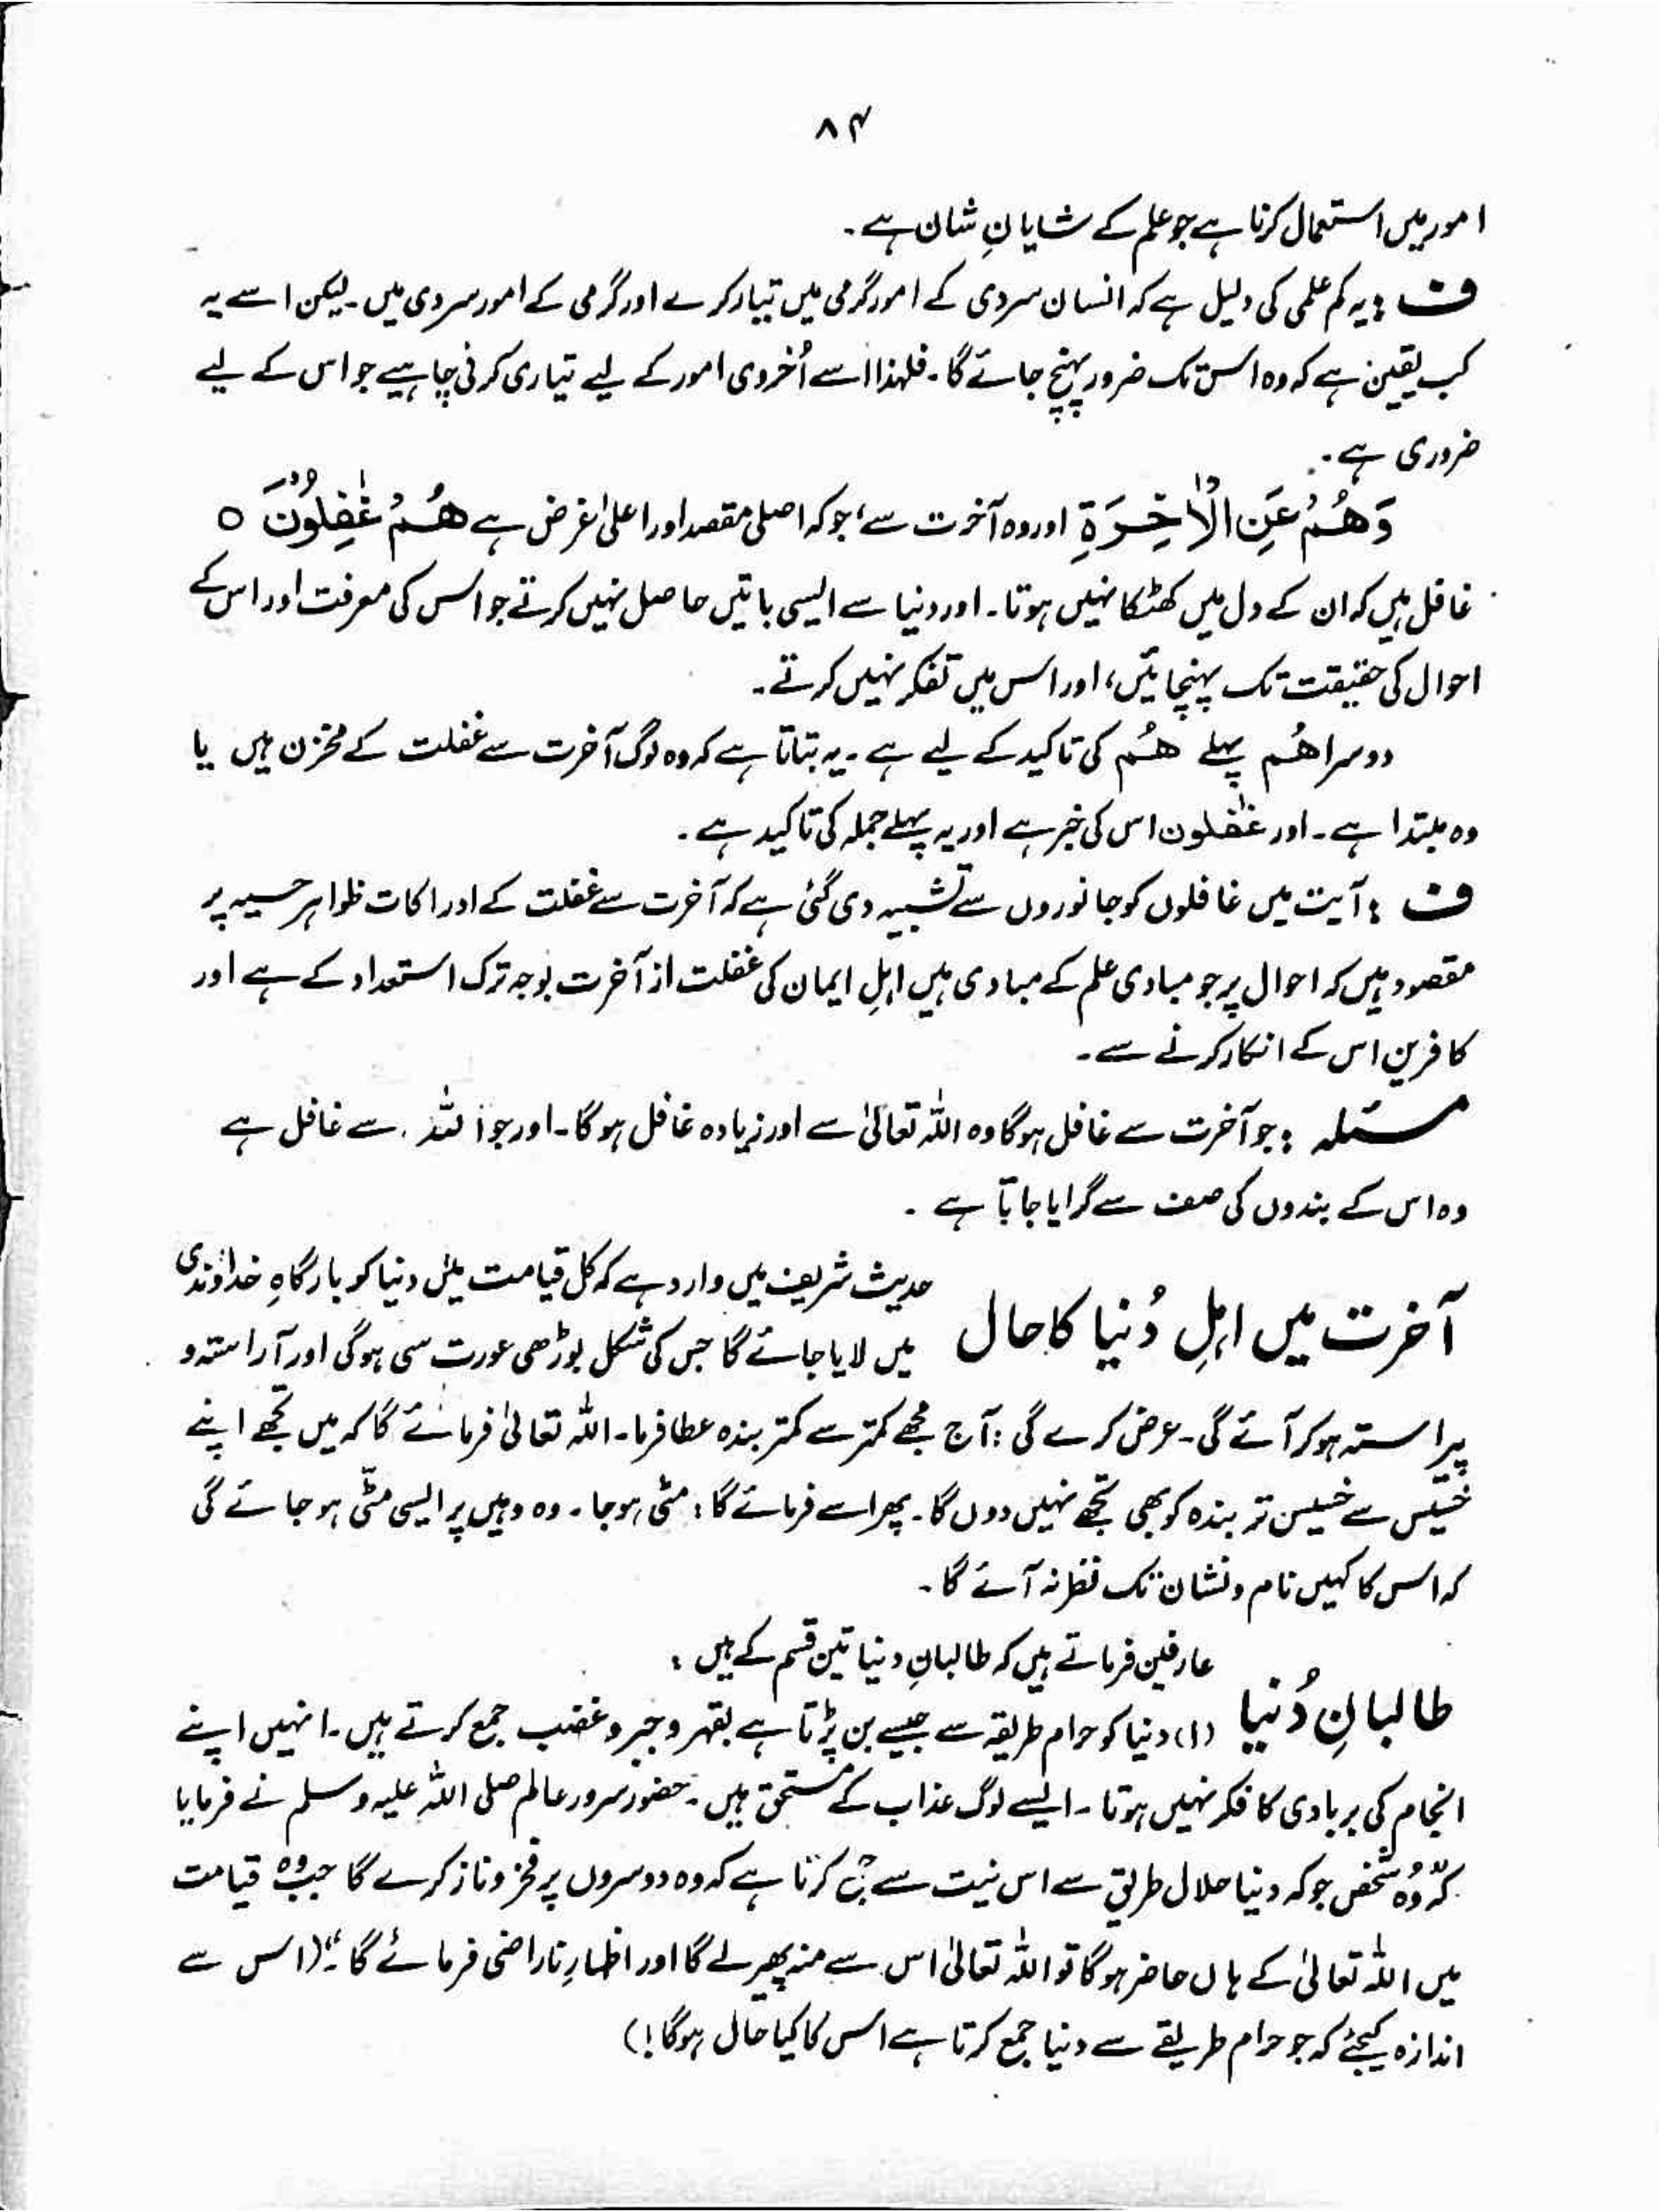 ۸۴
امور میں استعمال کرنا ہے جو علم کے شایانِ شان ہے۔
ف : یہ کم علمی کی دلیل ہے کہ انسان سردی کے امور گرمی میں تیار کرے اور گرمی کے امور سردی میں۔ لیکن اسے یہ
کب یقین ہے کہ وہ اس تک ضرور پہنچ جائے گا۔ فلہٰذا اسے اُخروی امور کے لیے تیاری کرنی چاہیے جو اس کے لیے
ضروری ہے۔
وَهُمْ عَنِ الْاٰخِرَةِ اور وہ آخرت سے، جو کہ اصلی مقصد اور اعلیٰ غرض ہے هُمْ غٰفِلُوْنَ ○
غافل ہیں کہ ان کے دل میں کھٹکا نہیں ہوتا۔ اور دنیا سے ایسی باتیں حاصل نہیں کرتے جو اس کی معرفت اور اس کے
احوال کی حقیقت تک پہنچائیں، اور اس میں تفکر نہیں کرتے۔
دوسرا هُم پہلے هُم کی تاکید کے لیے ہے۔ یہ بتاتا ہے کہ وہ لوگ آخرت سے غفلت کے مخزن ہیں یا
وہ مبتدا ہے۔ اور غٰفلون اس کی خبر ہے اور یہ پہلے جملہ کی تاکید ہے۔
ف : آیت میں غافلوں کو جانوروں سے تشبیہ دی گئی ہے کہ آخرت سے غفلت کے ادراکات ظواہر حسیہ پر
مقصود ہیں کہ احوال پر جو مبادی علم کے مبادی ہیں اہلِ ایمان کی غفلت از آخرت بوجہ ترک استعداد کے ہے اور
کافرین اس کے انکار کرنے سے۔
مسئلہ : جو آخرت سے غافل ہوگا وہ اللہ تعالیٰ سے اور زیادہ غافل ہوگا۔ اور جو اللہ سے غافل ہے
وہ اس کے بندوں کی صف سے گرایا جاتا ہے ۔
آخرت میں اہلِ دُنیا کا حال حدیث شریف میں وارد ہے کہ کل قیامت میں دنیا کو بارگاہِ خداوندی
میں لایا جائے گا جس کی شکل بوڑھی عورت سی ہوگی اور آراستہ و
پیراستہ ہو کر آئے گی۔ عرض کرے گی : آج مجھے کمتر سے کمتر بندہ عطا فرما۔ اللہ تعالیٰ فرمائے گا کہ میں تجھے اپنے
خسیس سے خسیس تر بندہ کو بھی تجھے نہیں دوں گا۔ پھر اسے فرمائے گا : مٹی ہو جا۔ وہ وہیں پر ایسی مٹّی ہو جائے گی
کہ اس کا کہیں نام و نشان تک نظر نہ آئے گا۔
عارفین فرماتے ہیں کہ طالبانِ دنیا تین قسم کے ہیں :
طالبانِ دُنیا (۱) دنیا کو حرام طریقہ سے جیسے بن پڑتا ہے بقہر و جبر و غضب جمع کرتے ہیں۔ انہیں اپنے
انجام کی بربادی کا فکر نہیں ہوتا ۔ ایسے لوگ عذاب کے مستحق ہیں۔ حضور سرور عالم صلی اللہ علیہ وسلم نے فرمایا
کہ "وُہ شخص جو کہ دنیا حلال طریق سے اس نیت سے جمع کرتا ہے کہ وہ دوسروں پر فخر و ناز کرے گا جب وہ قیامت
میں اللہ تعالیٰ کے ہاں حاضر ہوگا تو اللہ تعالیٰ اس سے منہ پھیر لے گا اور اظہارِ ناراضی فرمائے گا۔" (اس سے
اندازہ کیجئے کہ جو حرام طریقے سے دنیا جمع کرتا ہے اس کا کیا حال ہوگا!)